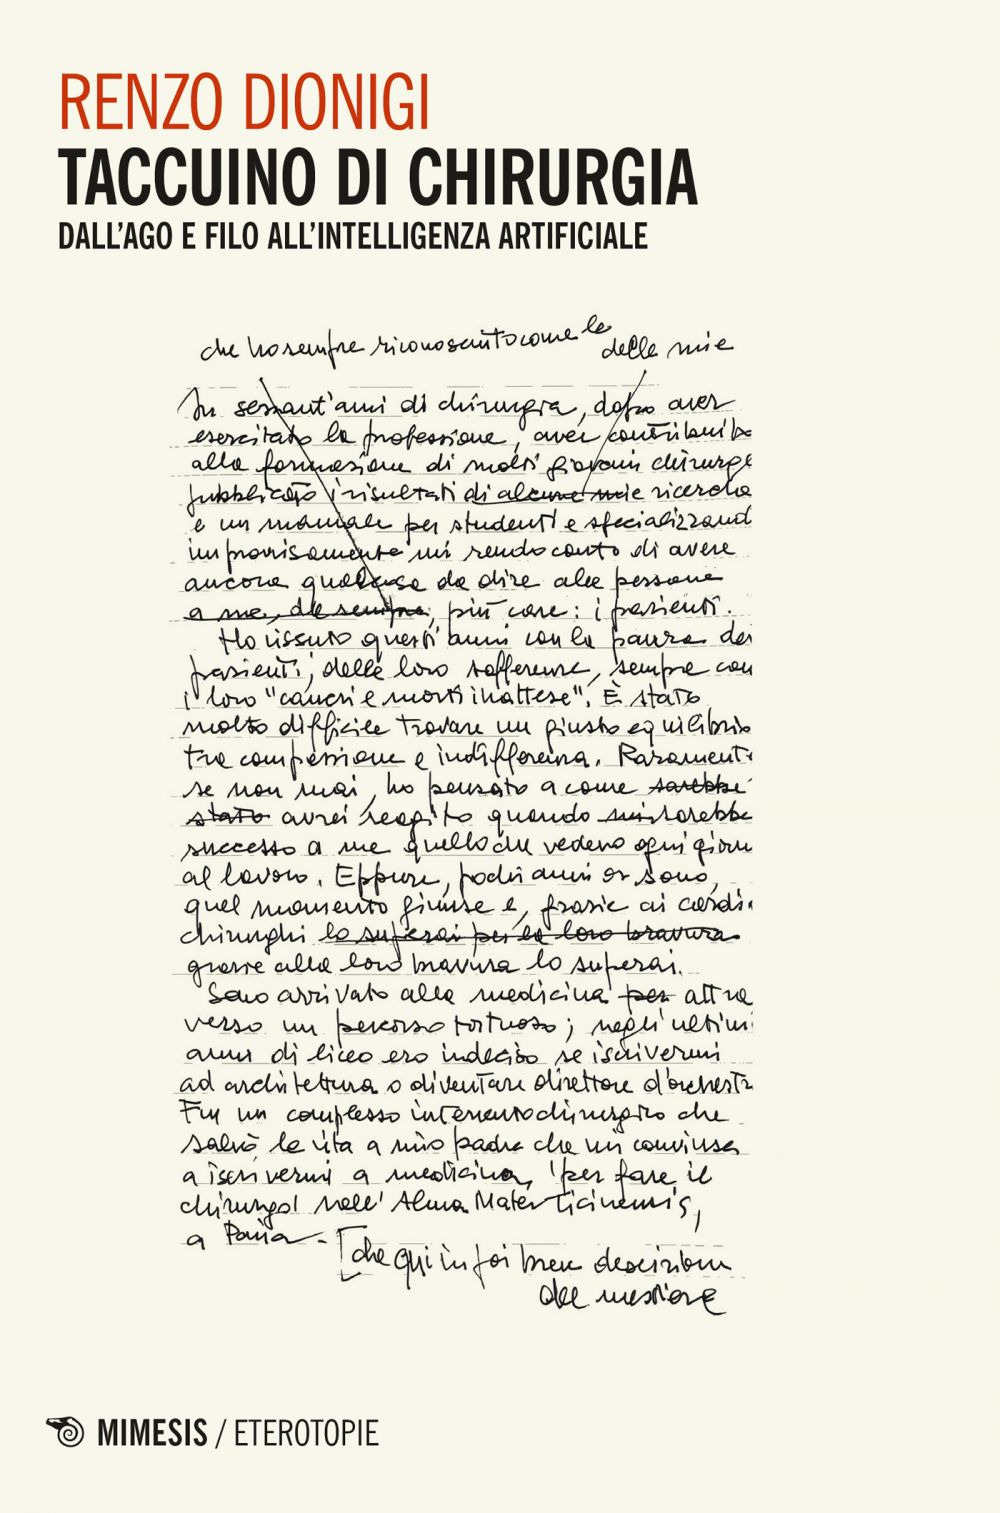 RENZO DIONIGI
TACCUINO DI CHIRURGIA
DALL'AGO E FILO ALL'INTELLIGENZA ARTIFICIALE
che ho sempre riconosciuto come le
delle mie
In sessant'anni di chirurgia, dopo aver
esercitato la professione, aver contribuito
alla formazione di molti giovani chirurgi
pubblicato i risultati di alcune mie ricerche
e un manuale per studenti e specializzand
improvvisamente mi rendo conto di avere
ancora qualcosa da dire alle persone
a me, da sempre, più care: i pazienti.
Ho vissuto questi anni con la paura dei
pazienti, delle loro sofferenze, sempre con
i loro "cancri e morti inattese". È stato
molto difficile trovare un giusto equilibrio
tra compassione e indifferenza. Raramente
se non mai, ho pensato a come sarebbe
stato avrei reagito quando mi sarebbe
successo a me quello che vedevo ogni giorn
al lavoro. Eppure, pochi anni or sono,
quel momento giunse e, grazie ai cardi
chirurghi lo superai per la loro bravura
grazie alla loro bravura lo superai.
Sono arrivato alla medicina per attra
verso un percorso tortuoso; negli ultimi
anni di liceo ero indeciso se iscrivermi
ad architettura o diventare direttore d'orchestr
Fu un complesso intervento chirurgico che
salvò la vita a mio padre che mi convinse
a iscrivermi a medicina, 'per fare il
chirurgo' nell'Alma Mater Ticinensis,
a Pavia.
[che qui in poi breve descrizione
del mestiere
MIMESIS / ETEROTOPIE